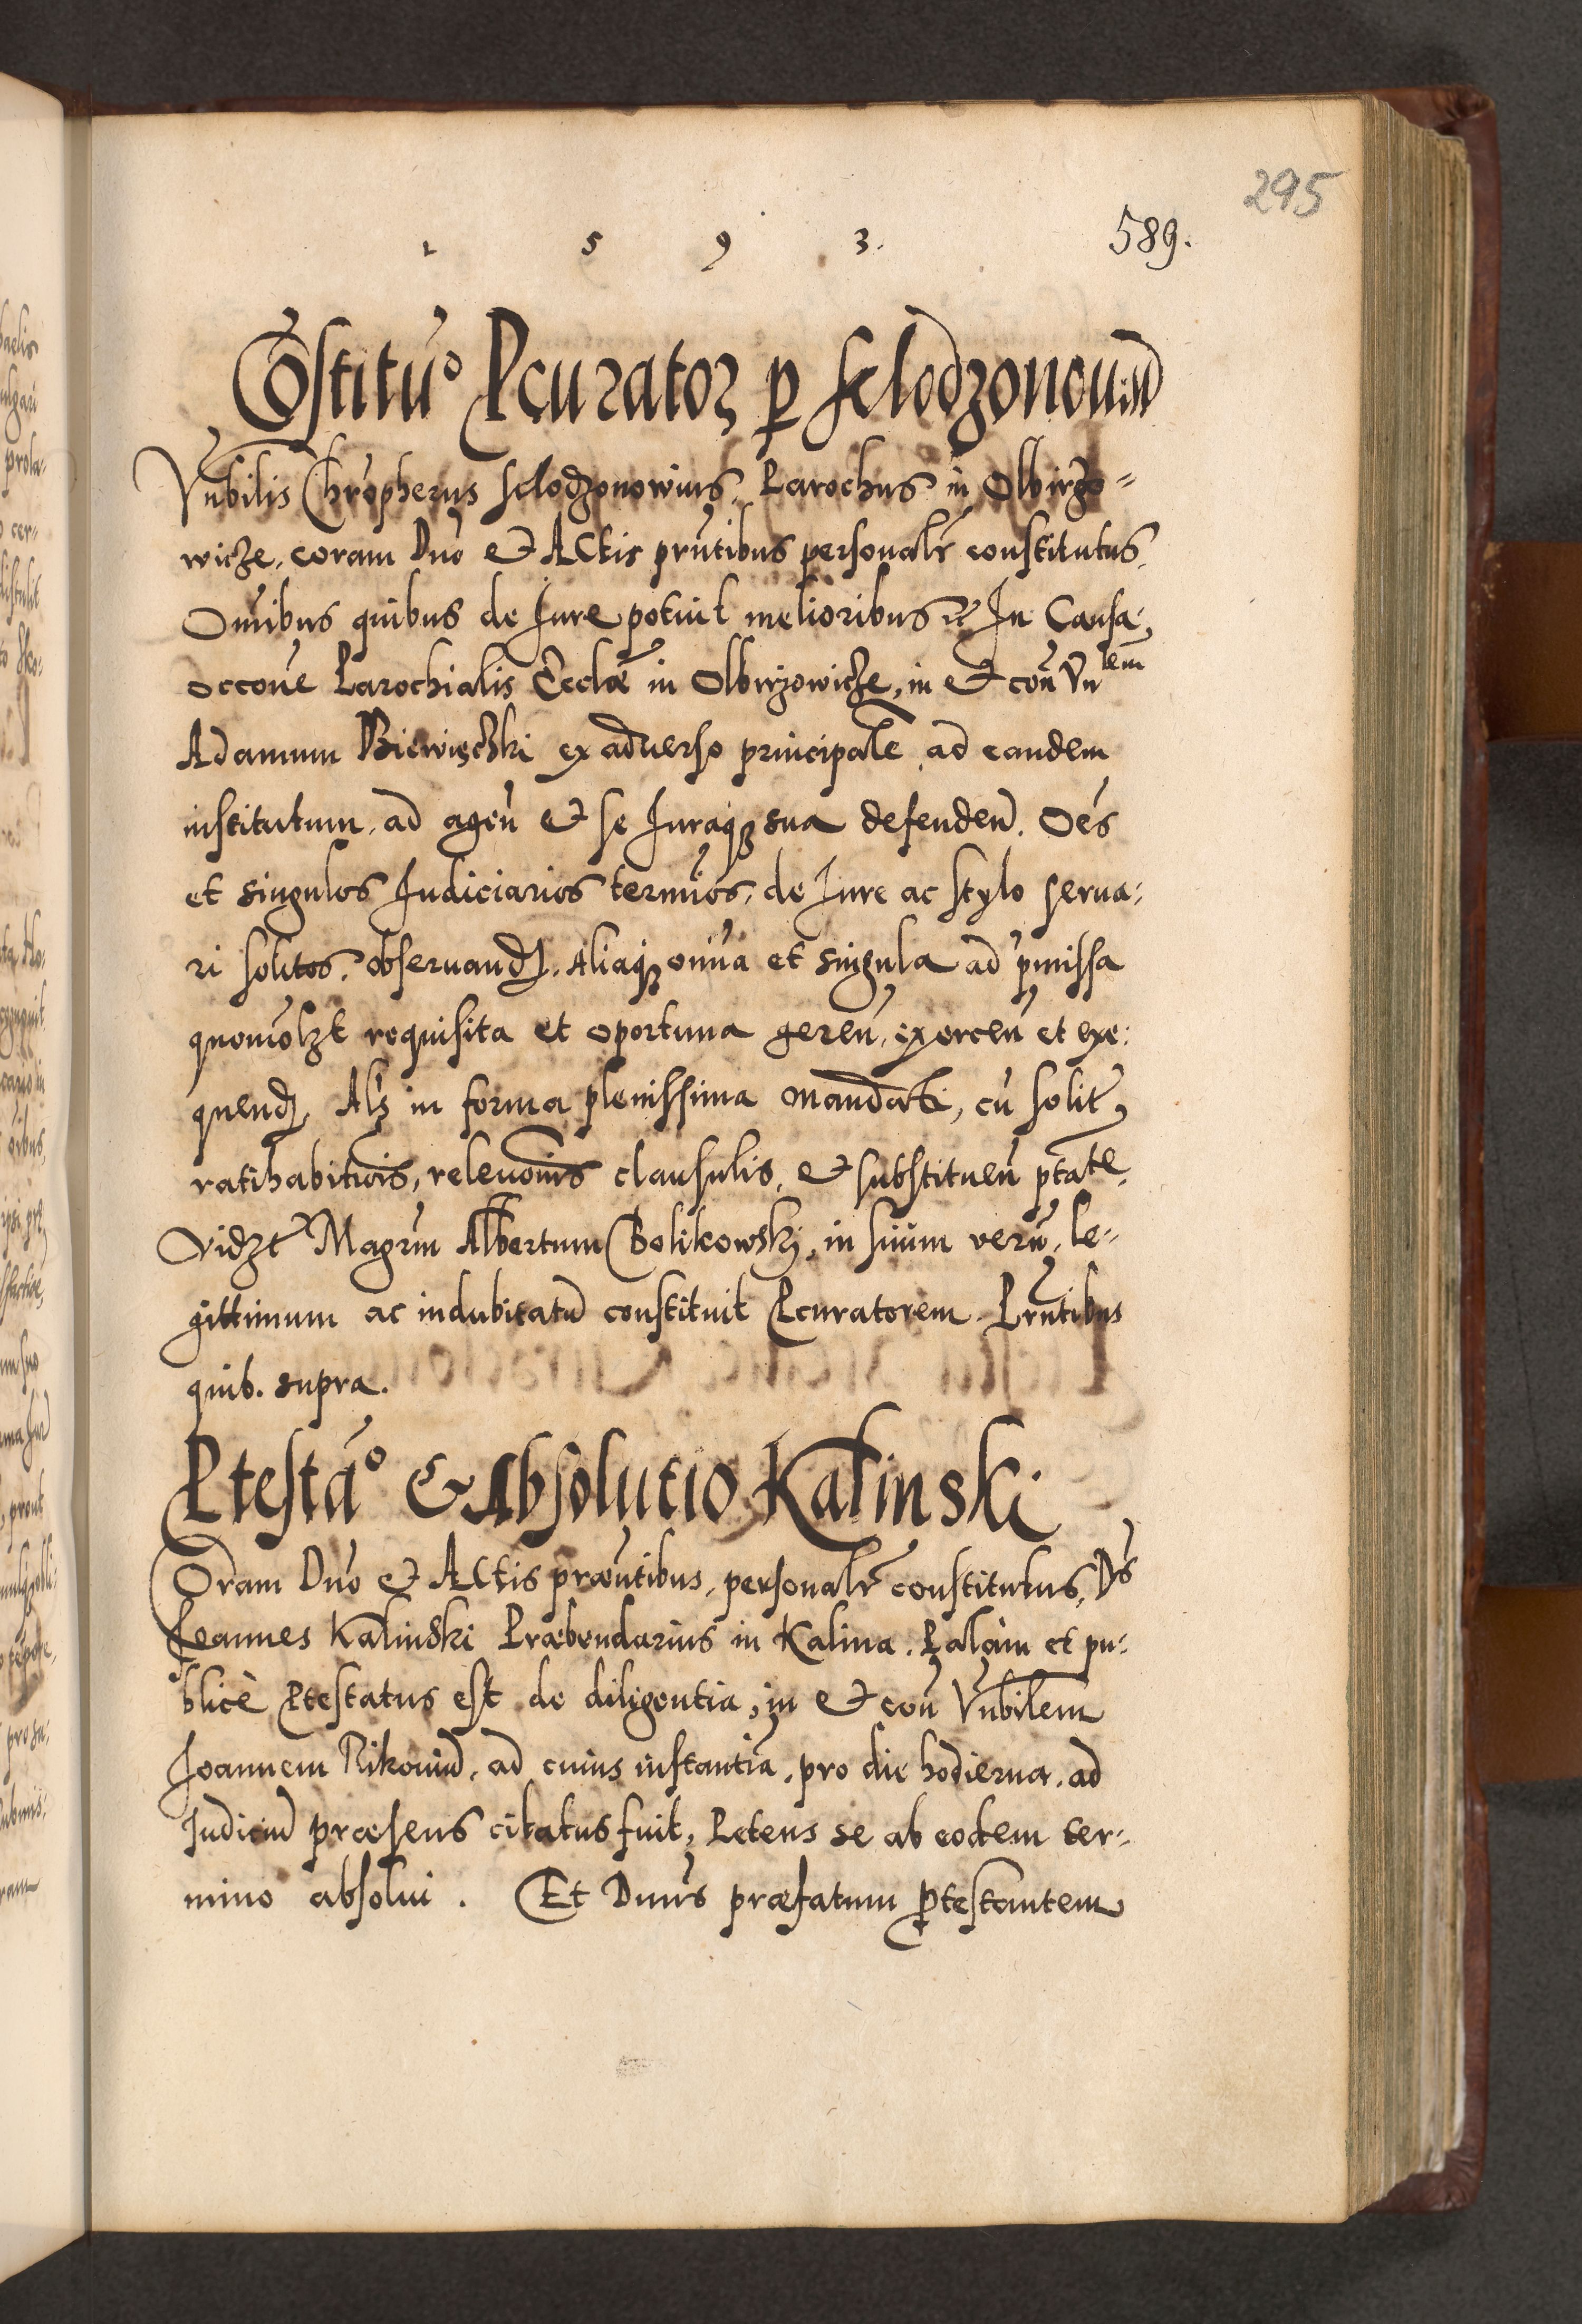 295
1 5 9 3.
589.
Cōstitúo Pcurator p selodzonouiū
Vnbilis Chrōpherus selodzonowius, Parochus in Olbirzo=
wicze, coram Dn̄o et Actis prn̄tibus personalr̄ constitutus,
Omībus quibus de Jure potuit melioribus In Causa,
occone Parochialis Ecclæ in Olbirzowicze, in et con̄ Vnlem
Adamum Biewięczki ex aduerso principalē ad eandem
institutum, ad agen̄ et se Juraqȝ sua defenden̄. Oēs
et singulos Judiciarios termīos, de Jure ac stylo serua:
ri solitos, obseruandȝ. Aliaqȝ omīa et singula ad pmissa
quomolȝt requisita et oportuna geren̄, exercen̄ et exe:
quendȝ, Alȝ in forma plenissima mandati, cū solitȝ
ratihabitiois, releuonis clausulis, et substituen̄ ptāte.
Vidȝt Magrm̄ Albertum Bolikowskj, in suum verū, le=
gittimum ac indubitatū constituit Pcuratorem. Prn̄tibus
quib. supra.
Ptestāo et Absolutio Kalinski
Coram Dn̄o et Actis præn̄tibus, personalr̄ constitutus, Dn̄s
Joannes Kalinski Præbendarius in Kalina. Palàm et pu:
blicè Ptestatus est de diligentia, in et con̄ Vnbilem
Joannem Rikouiū, ad cuius instantiā, pro die hodierna, ad
Judiciū præsens citatus fuit, Petens se ab eodem ter=
mino absolui. Et Dnūs præfatum ptestantem